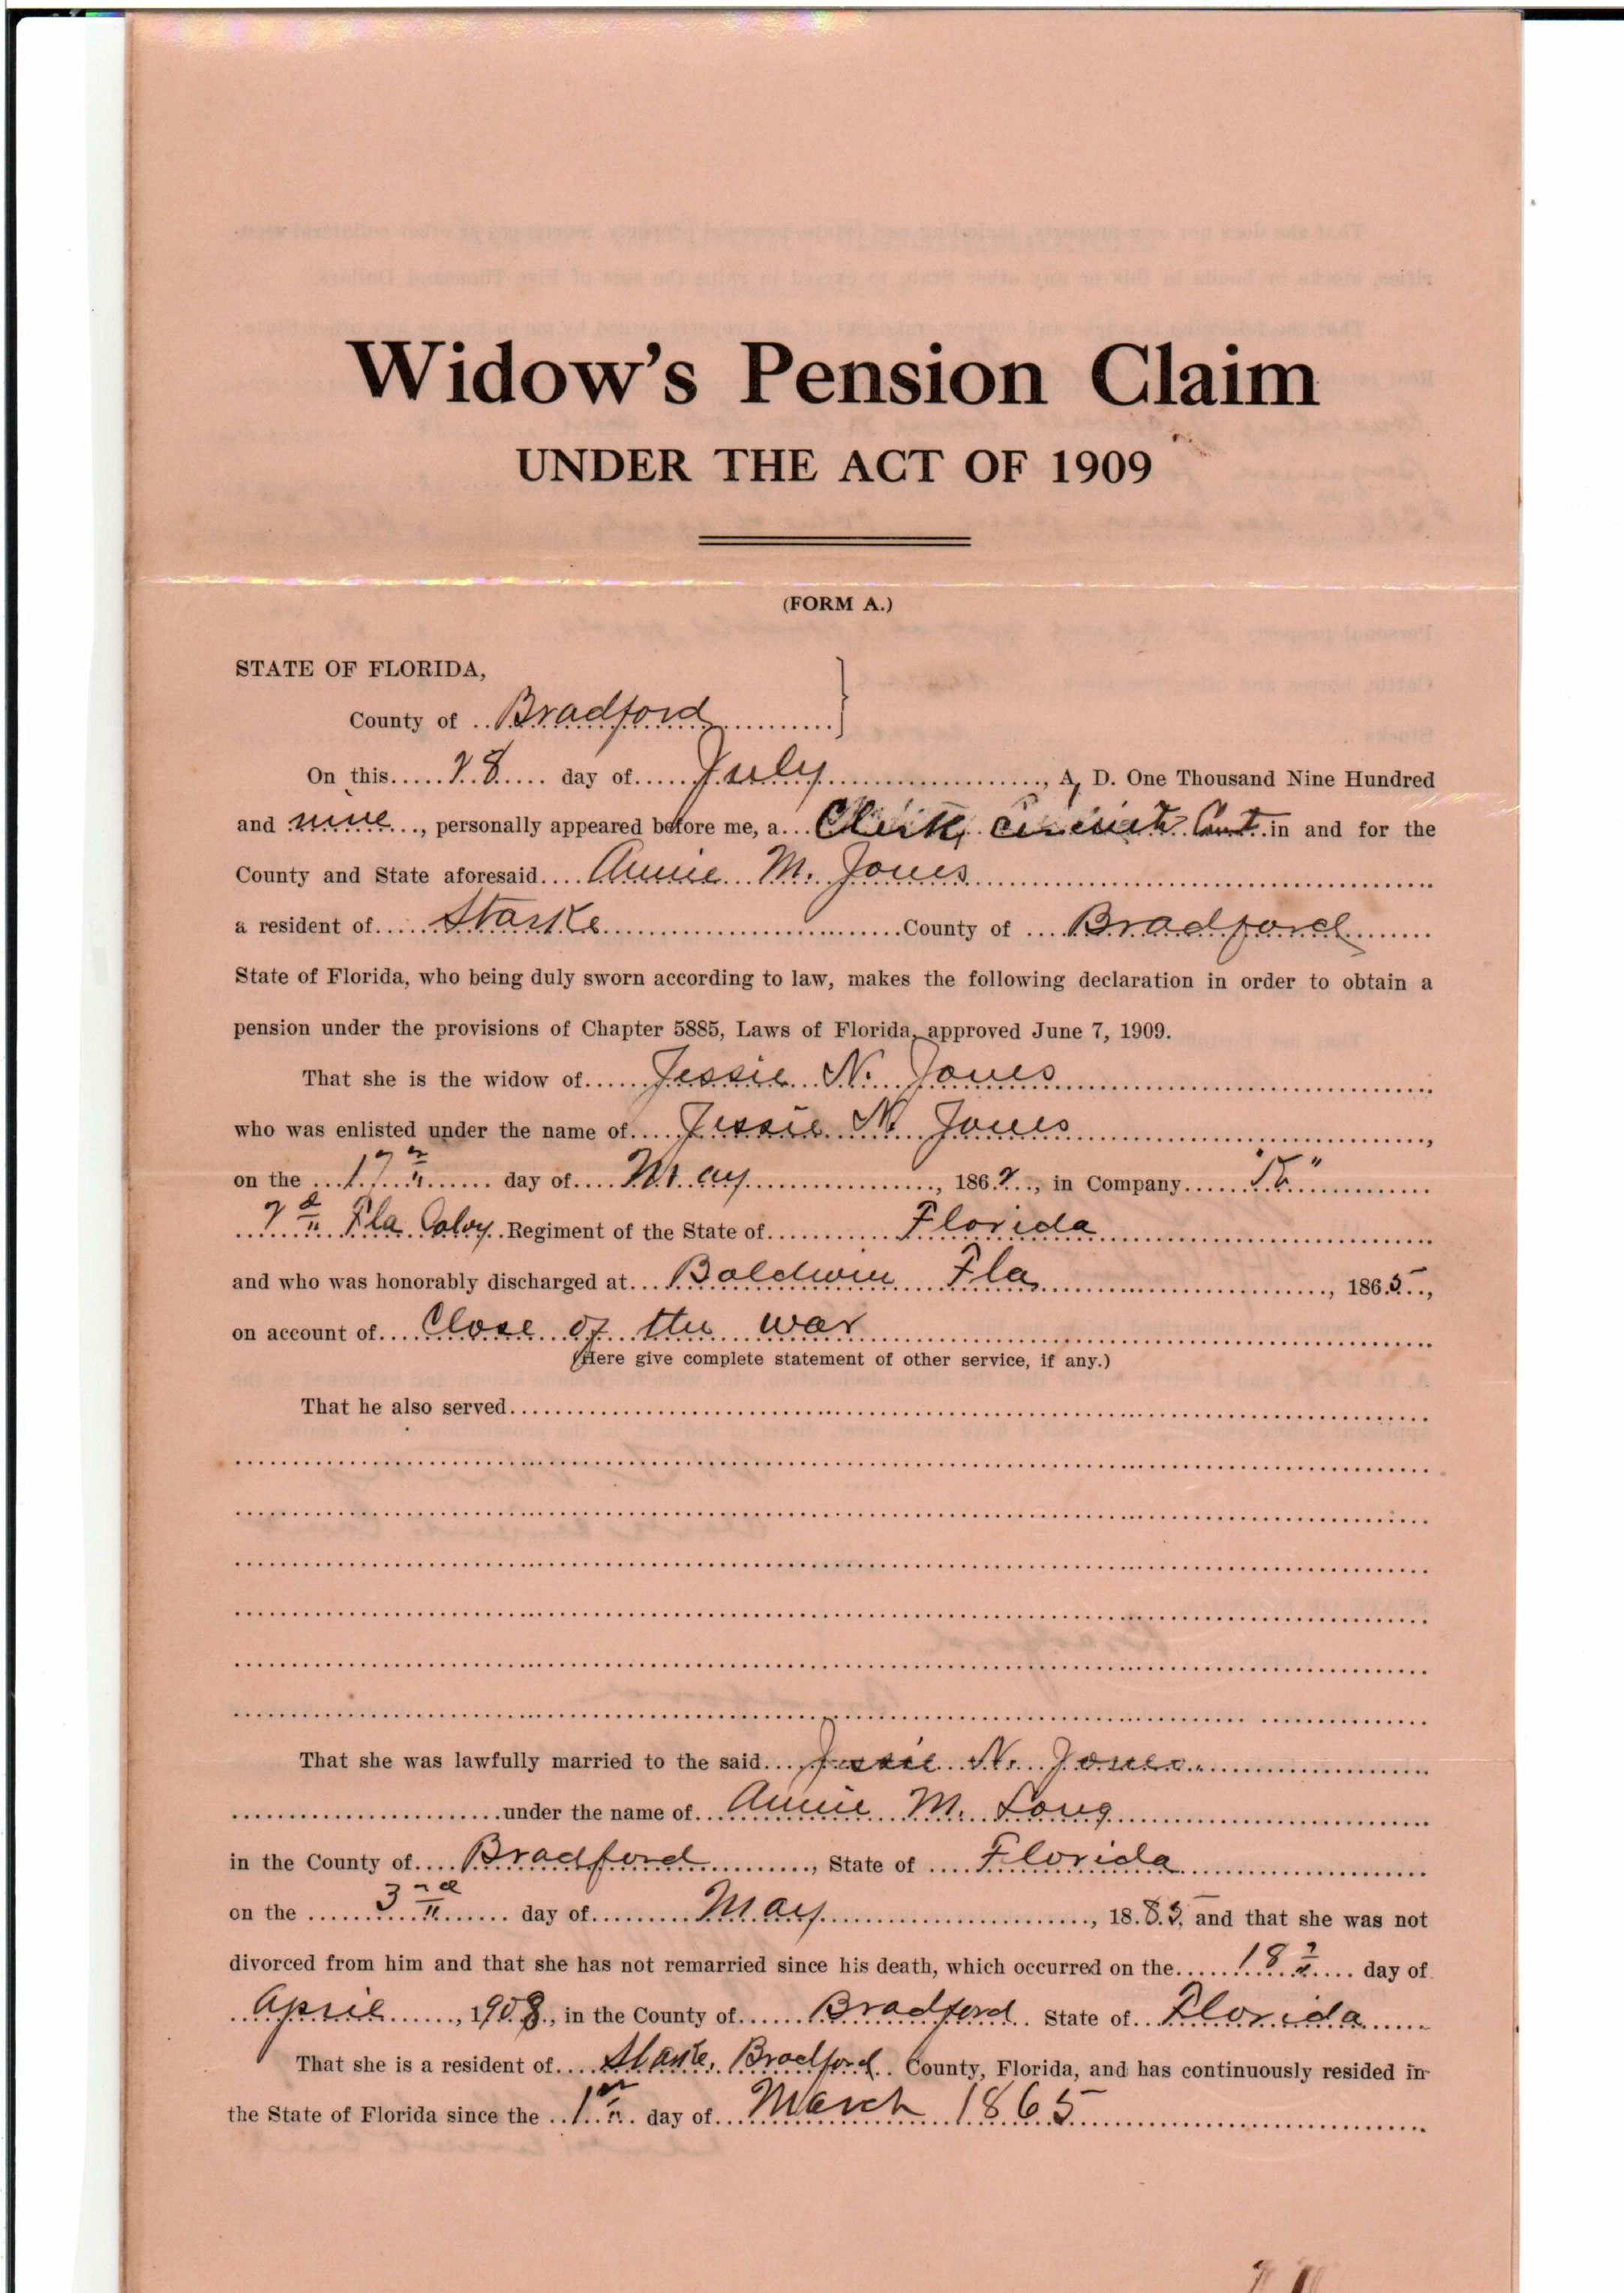 Widow's Pension Claim
UNDER THE ACT OF 1909
(FORM A.)
STATE OF FLORIDA,
County of Bradford
On this 28 day of July, A. D. One Thousand Nine Hundred
and nine, personally appeared before me, a Clerk, circuit Court in and for the
County and State aforesaid Annie M. Jones
a resident of Starke County of Bradford
State of Florida, who being duly sworn according to law, makes the following declaration in order to obtain a
pension under the provisions of Chapter 5885, Laws of Florida, approved June 7, 1909.
That she is the widow of Jessie N. Jones
who was enlisted under the name of Jessie N. Jones,
on the 17 day of May, 1862, in Company
2d Fla Calvy Regiment of the State of Florida
and who was honorably discharged at Baldwin Fla, 1865,
on account of Close of the war
(Here give complete statement of other service, if any.)
That he also served
That she was lawfully married to the said Jessie N. Jones
under the name of Annie M. Long
in the County of Bradford, State of Florida
on the 3rd day of May, 1883, and that she was not
divorced from him and that she has not remarried since his death, which occurred on the 18 day of
April, 1908, in the County of Bradford State of Florida
That she is a resident of Starke, Bradford County, Florida, and has continuously resided in
the State of Florida since the 1 day of March 1865